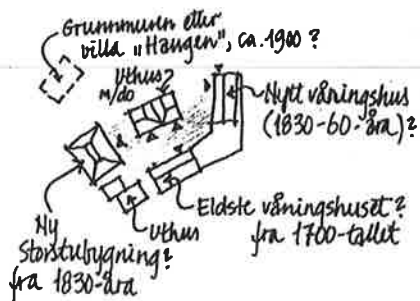 Grunnmuren etter
villa "Haugen", ca. 1900?
Uthus?
m/do
Nytt våningshus
(1830-60-åra)?
Eldste våningshuset?
fra 1700-tallet
Uthus
Ny
Storstubygning?
fra 1830-åra